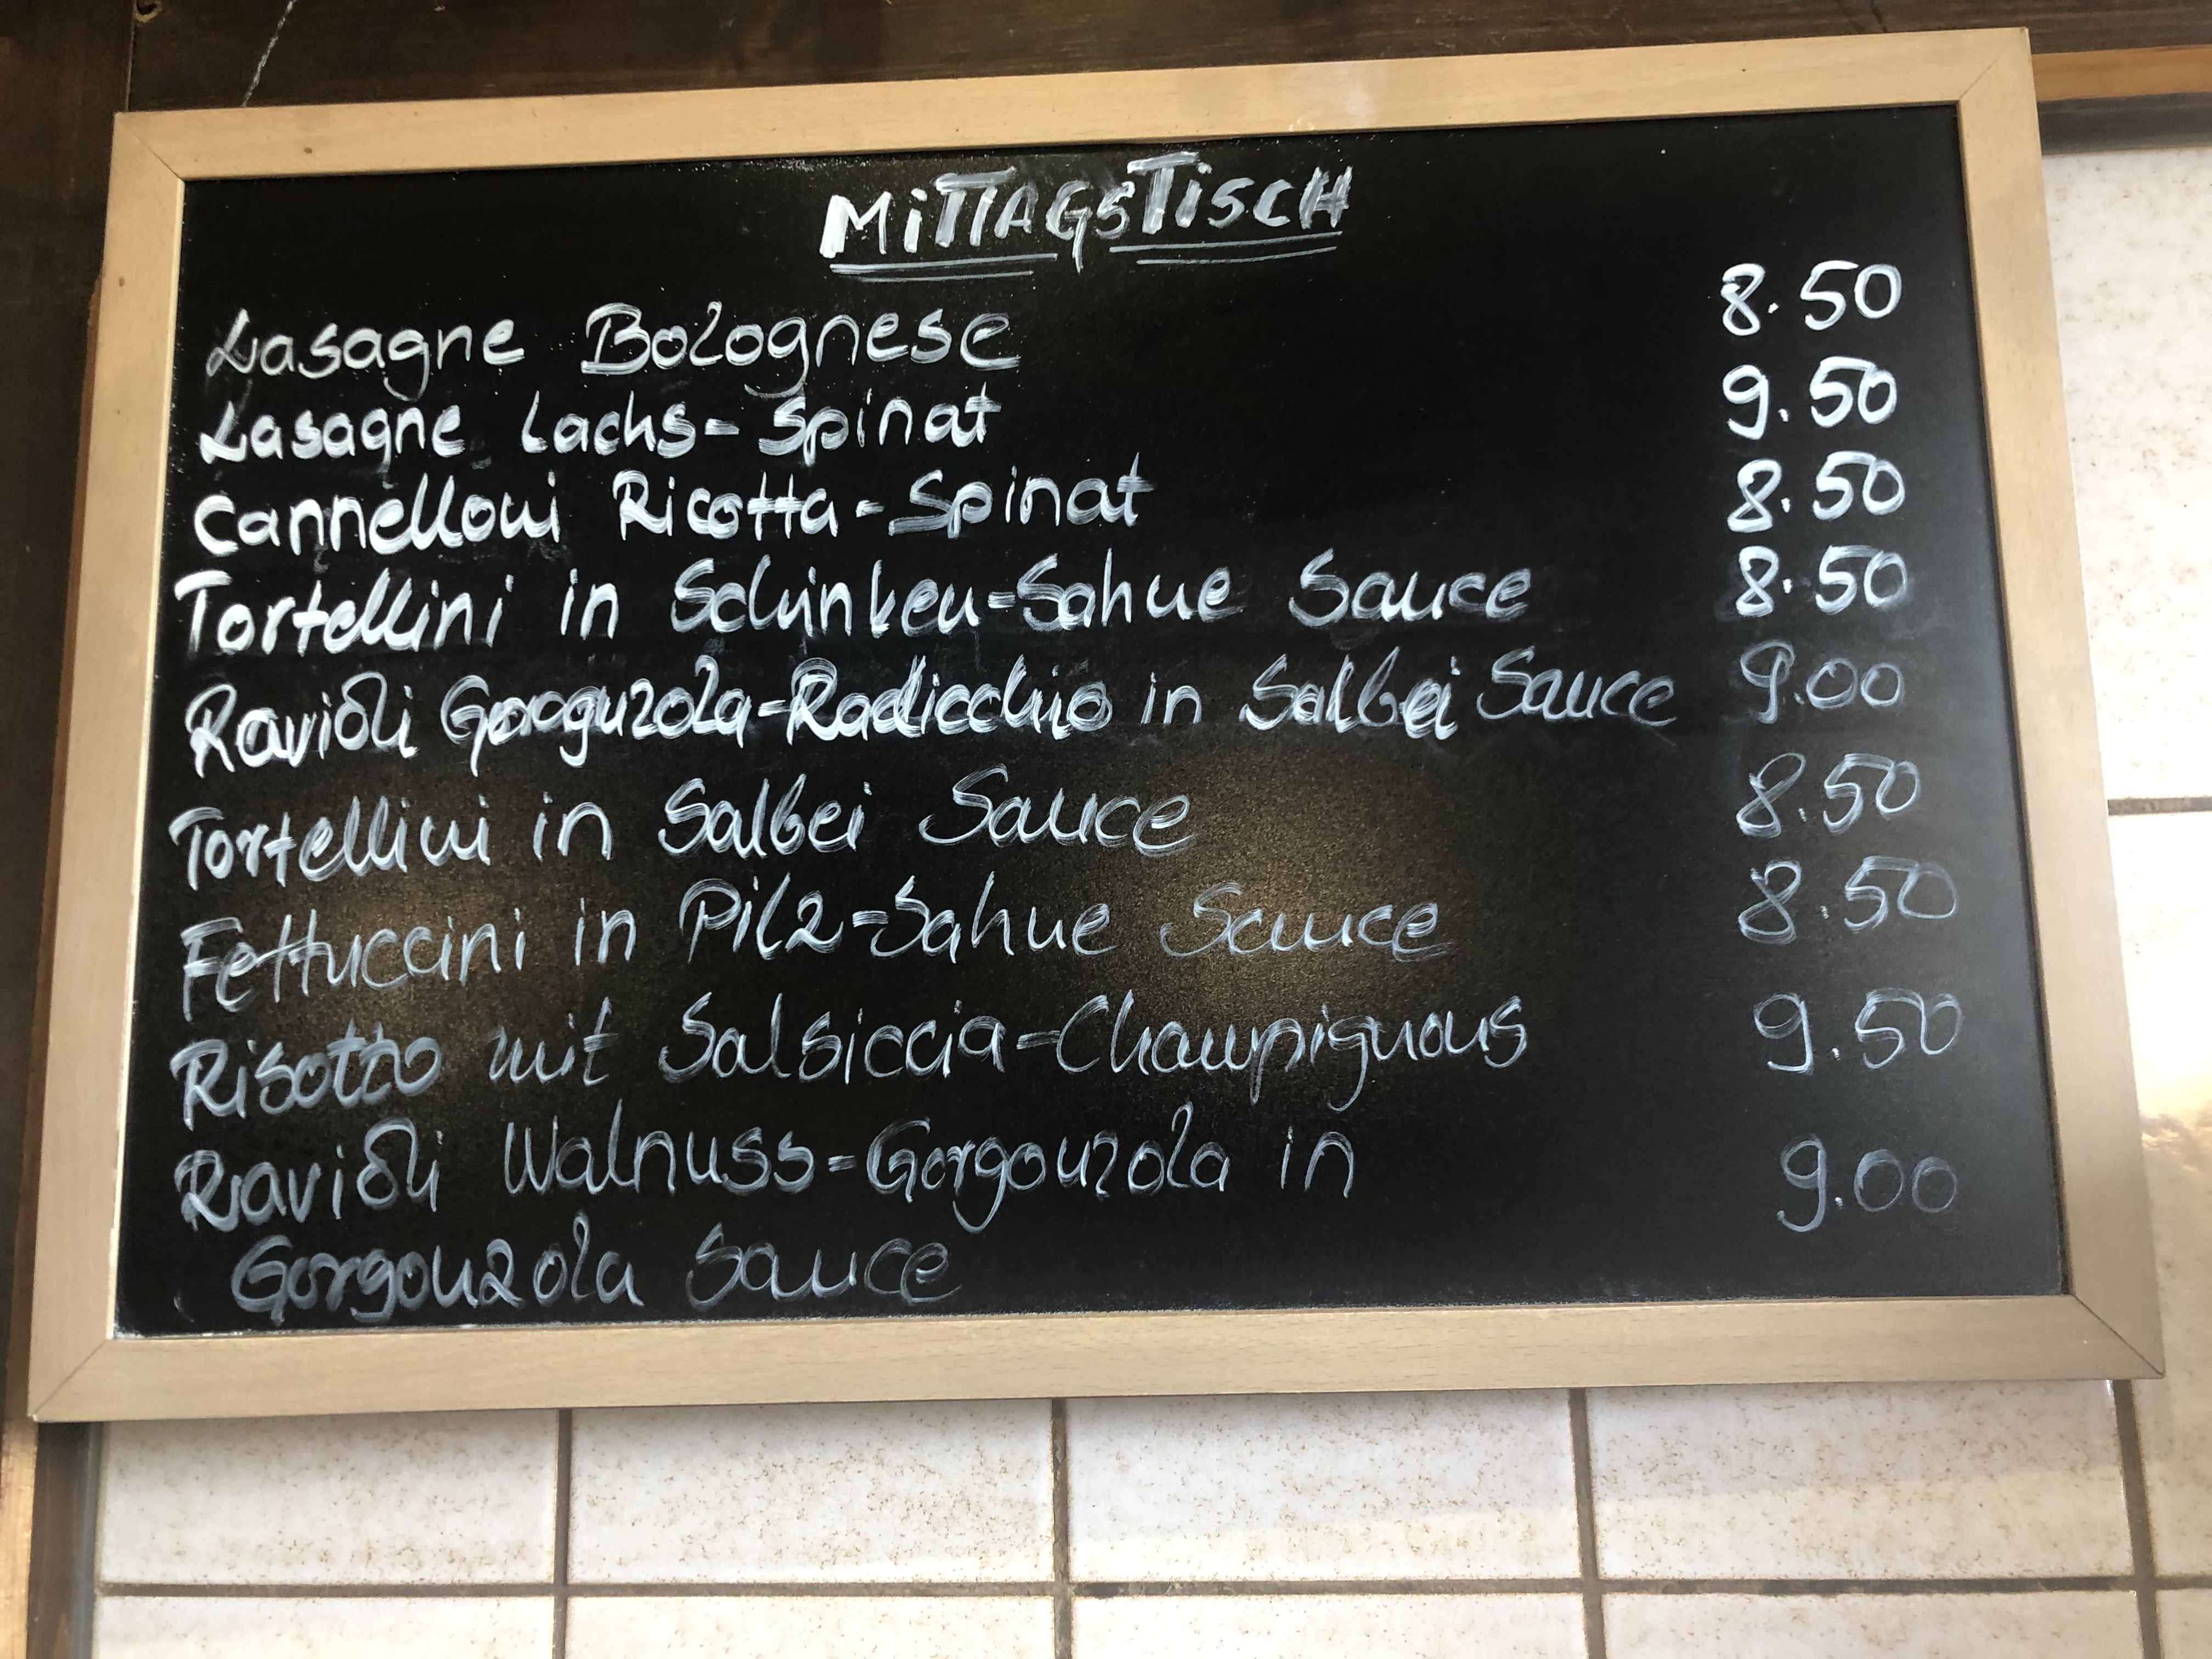 MiTTAGSTiSCH
Lasagne Bolognese 8.50
Lasagne Lachs-Spinat 9.50
Cannelloni Ricotta-Spinat 8.50
Tortellini in Schinken-Sahne Sauce 8.50
Ravioli Gorgonzola-Radicchio in Salbei Sauce 9.00
Tortellini in Salbei Sauce 8.50
Fettuccini in Pilz-Sahne Sauce 8.50
Risotto mit Salsiccia-Champignons 9.50
Ravioli Walnuss-Gorgonzola in 9.00
Gorgonzola Sauce